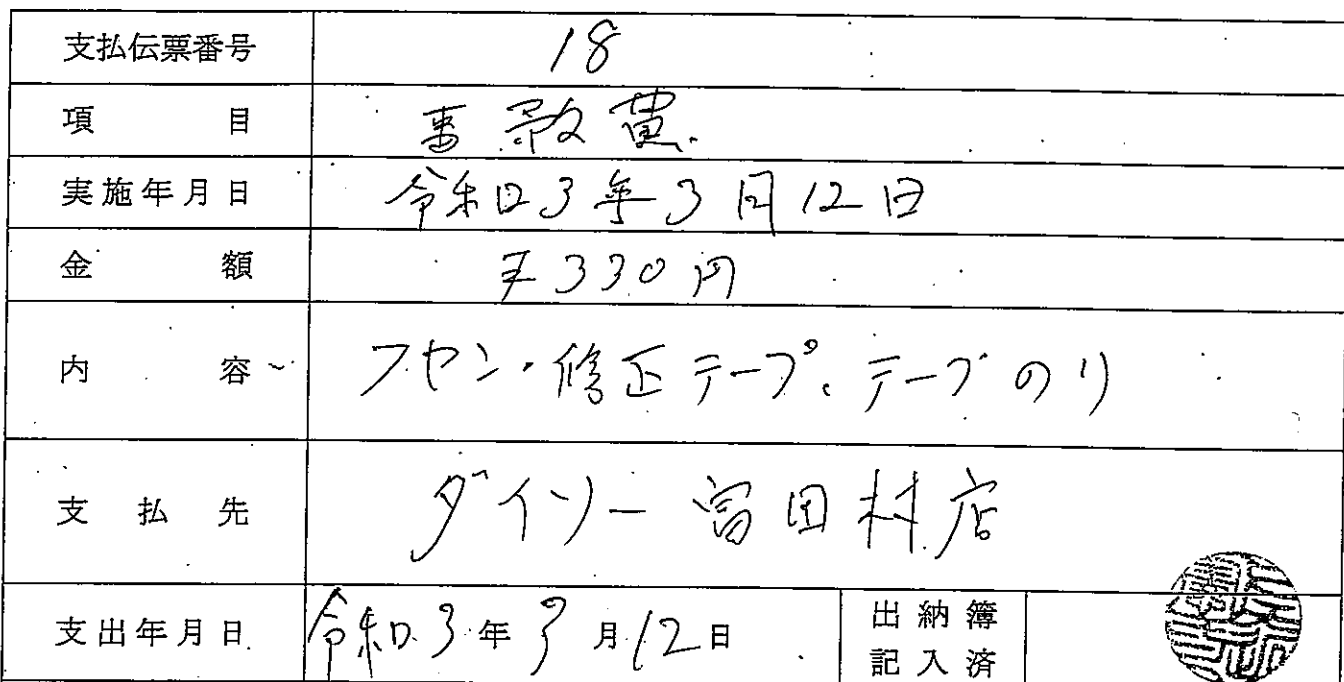 支払伝票番号 18
項目 事務費
実施年月日 令和3年3月12日
金額 ¥330円
内容 フセン・修正テープ、テープのり
支払先 ダイソー富田林店
支出年月日 令和3年3月12日 出納簿
記入済